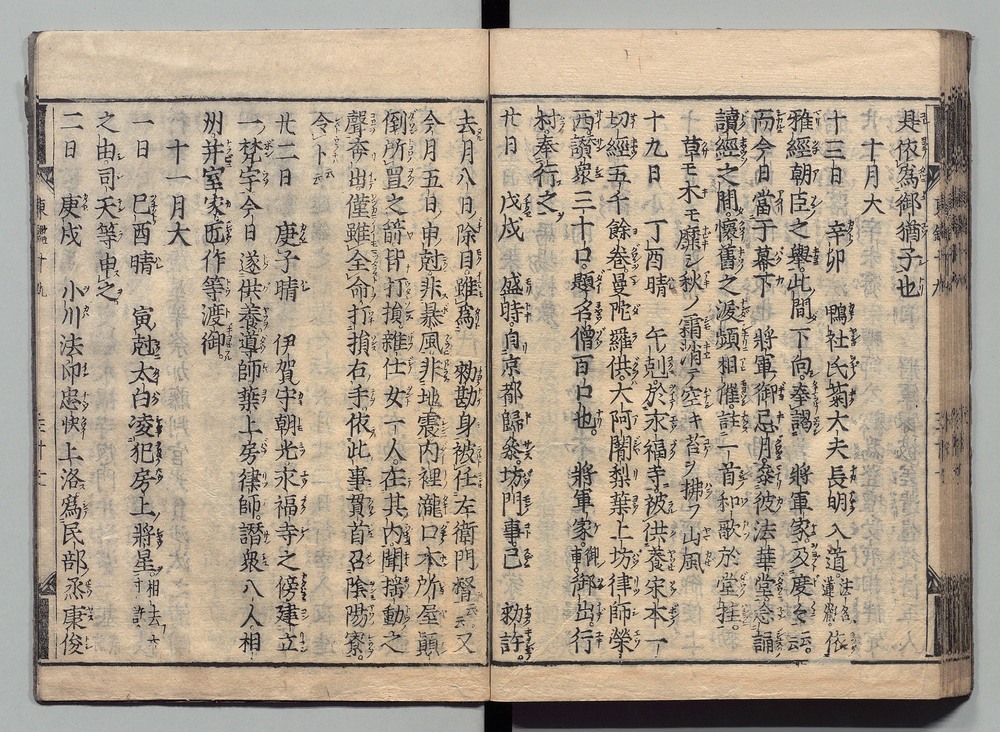 具依爲御猶子也
十月大
十三日 辛卯 鴨社氏菊大夫長明入道法名蓮胤依
雅經朝臣之擧此間下向奉謁 將軍家及度々云云
而今日當于幕下 將軍御忌月參彼法華堂念誦
讀經之間懷舊之淚頻相催註一首和歌於堂柱
草モ木モ靡シ秋ノ霜消テ空キ苔ヲ拂フ山風
十九日小 丁酉晴 午尅於永福寺被供養宋本一
切經五千餘卷曼陀羅供大阿闍梨葉上坊律師榮
西讃衆三十口題名僧百口也 將軍家御車御出行
村奉行之
廿日 戊戌 盛時自京都歸參坊門事已 勅許
去月八日除目雖爲 勅勘身被任左衛門督云云又
今月五日申尅非暴風非地震内裡瀧口本所屋顚
倒所置之箭皆打損雜仕女一人在其内聞揺動之
聲奔出僅雖全命打損右手依此事賀首召陰陽寮
令卜云云
廿二日 庚子晴 伊賀守朝光永福寺之傍建立
一梵宇今日遂供養導師葉上房律師讃衆八人相
州并室家匠作等渡御
十一月大
一日 己酉晴 寅尅太白凌犯房上將星相去六寸許
之由司天等申之
二日 庚戌 小川法印忠快上洛爲民部烝康俊
東鑑十九